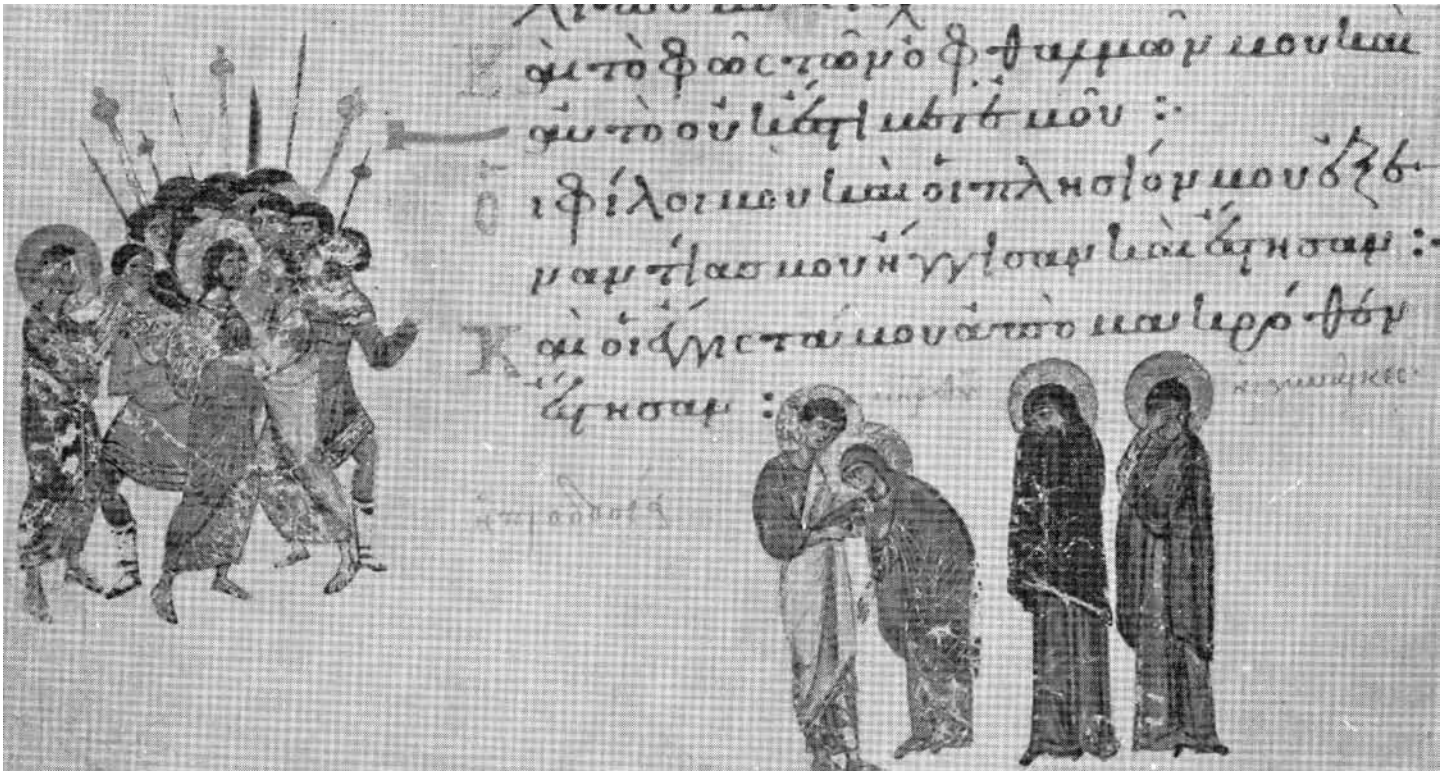 Καὶ τὸ φῶς τῶν ὀφθαλμῶν μου καὶ
αὐτὸ οὐκ ἔστι μετ ἐμοῦ :
Οἱ φίλοι μου καὶ οἱ πλησίον μου ἐξ ἐ
ναντίας μου ἤγγισαν καὶ ἔστησαν :
Καὶ οἱ ἔγγιστά μου ἀπὸ μακρόθεν
ἔστησαν :